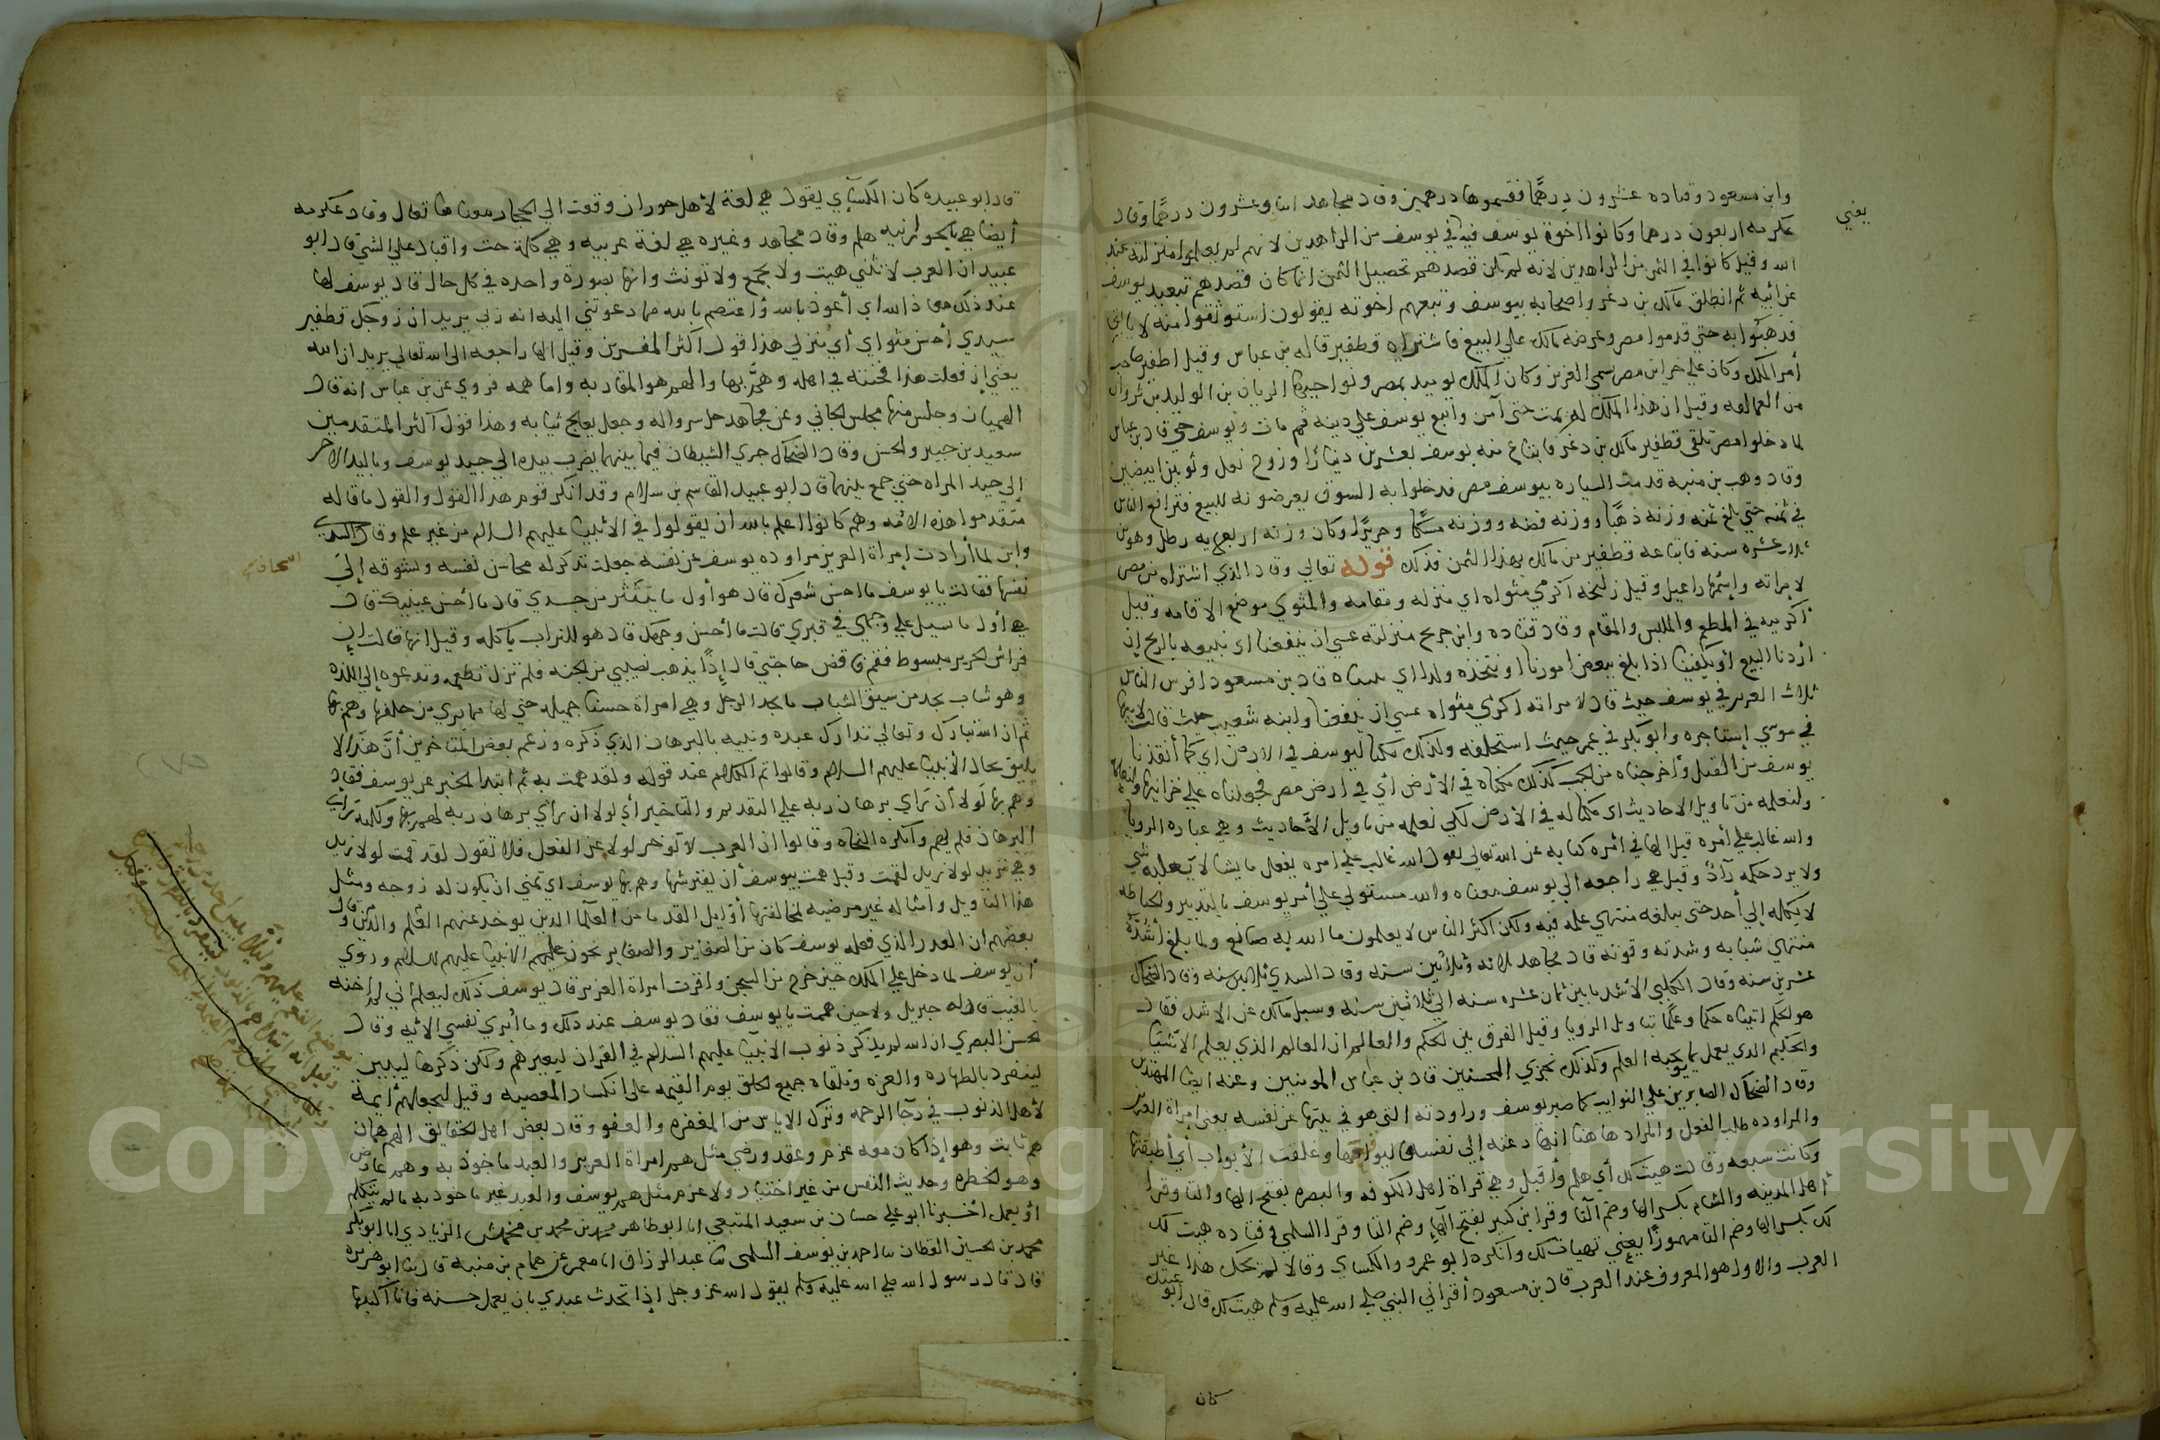 وابن مسعود وقتاده عشرون درهمًا فقسموها درهمين وقال مجاهد اثنا وعشرون درهمًا وقال
يعني
عكرمه اربعون درهما وكانوا اخوة يوسف فيه في يوسف من الزاهدين لانهم لم يعلموا منزلته عند
الله وقيل كانوا في الثمن من الزاهدين لانه لم يكن قصدهم تحصيل الثمن انما كان قصدهم تبعيد يوسف
عن ابيه ثم انطلق مالك بن دعر واصحابه بيوسف وتبعهم اخوته يقولون استوثقوا منه لا يابق
فذهبوا به حتي قدموا مصر وعرضه مالك علي البيع فاشتراه قطفير قاله بن عباس وقيل اطفير صاحب
أمر الملك وكان علي خزاين مصر يسمي العزيز وكان الملك يوميذ بمصر ونواحيها الريان بن الوليد بن ثروان
من العمالقه وقيل ان هذا الملك لم يمت حتى آمن واتبع يوسف علي دينه ثم مات ويوسف حي قال بن عباس
لما دخلوا مصر تلقى قطفير مالك بن دعر فابتاع منه يوسف بعشرين دينارًا وزوج نعل وثوبين ابيضين
وقال وهب بن منبه قدمت السياره بيوسف مصر فدخلوا به السوق يعرضونه للبيع فترافع الناس
في ثمنه حتي بلغ ثمنه وزنه ذهبًا ووزنه فضه ووزنه مسكًا وحريرًا وكان وزنه اربعمايه رطل وهو بن
ثلاث عشره سنه فابتاعه قطفير من مالك بهذا الثمن فذلك قوله تعالي وقال الذي اشتراه من مصر
لامراته واسمها راعيل وقيل زليخه اكرمي مثواه اي منزله ومقامه والمثوي موضع الاقامه وقيل
أكرميه في المطعم والملبس والمقام وقال قتاده وابن جريج منزلته عسي ان ينفعنا اي نبيعه بالربح إن
أردنا البيع أو يكفينا اذا بلغ بعض امورنا او نتخذه ولدا اي نتبناه قال بن مسعود افرس الناس
ثلاث العزيز في يوسف حيث قال لامراته اكرمي مثواه عسي ان ينفعنا وابنه شعيب حيث قالت لابيها
في موسي إستاجره وابو بكر في عمر حيث استخلفه وكذلك مكنا ليوسف في الارض اي كما أنقذنا
يوسف من القتل وأخرجناه من الجب كذلك مكناه في الأرض أي في ارض مصر فجعلناه علي خزاينها
ولنعلمه من تاويل الاحاديث اي مكنا له في الأرض لكي نعلمه من تاويل الأحاديث وهي عباره الرويا
والله غالب علي أمره قيل الها في امره كنايه عن الله تعالي يقول الله غالب علي امره يفعل ما يشا لا يغلبه شي
ولا يرد حكمه رآدٌ وقيل هي راجعه الي يوسف معناه والله مستولي علي أمر يوسف بالتدبير والحياطه
لا يكله إلي أحد حتى يبلغه منتهي علمه فيه ولكن اكثر الناس لا يعلمون ما الله به صانع ولما بلغ أشدّه
منتهي شبابه وشدته وقوته قال مجاهد ثلاثه وثلاثين سنه وقال السدي ثلاثين سنه وقال الضحاك
عشرين سنه وقال الكلبي الأشد ما بين ثمان عشره سنه الي ثلاثين سنه وسيل مالك عن الاشد فقال
هو الحلم اتيناه حكما وعلمًا تاويل الرويا وقيل الفرق بين الحكم والعالم ان العالم الذي يعلم الأشيا
والحكيم الذي يعمل بما يوجبه العلم وكذلك نجزي المحسنين قال بن عباس المومنين وعنه ايضا المهتدين
وقال الضحاك الصابرين علي النوايب كما صبر يوسف وراودته التي هو في بيتها عن نفسه يعني امراة العزيز
والمراوده طلب الفعل والمراد هاهنا انها دعته إلي نفسها ليواقعها وغلقت الأبواب أي أطبقتها
وكانت سبعه وقالت هيت لك أي هلم واقبل وهي قراة اهل الكوفه والبصره بفتح الها والتا وقرا
أهل المدينه والشام بكسر الها وفتح التا وقرا بن كثير بفتح الهاء وضم التا وقرا السلمي وقتاده هيت لك
لك بكسر الها وضم التا مهموزًا يعني تهيات لك وانكره ابو عمرو والكساي وقالا لم تحك هذا عن
العرب والاول هو المعروف عند العرب قال بن مسعود أقراني النبي صلي الله عليه وسلم هيت لك قال ابو
كان
قال ابو عبيده كان الكسآي يقول هي لغة لأهل حوران وقعت الي الحجاز معناها تعال وقال عكرمه
أيضا هي بالحورانيه هلم وقال مجاهد وغيره هي لغة عربيه وهي كلمة حث واقبال علي الشي قال ابو
عبيد ان العرب لا تثني هيت ولا تجمع ولا تونث وانها بصورة واحده في كل حال قال يوسف لها
عند ذلك معاذ الله اي أعوذ بالله واعتصم بالله مما دعوتني اليه انه ربي يريد ان زوجك قطفير
سيدي أحسن مثواي أي منزلي هذا قول اكثر المفسرين وقيل الها راجعه الي الله تعالي يريد ان الله
يعني إن فعلت هذا فخنته في اهله وهمّ بها والهم هو المقاربه واما همه فروي عن بن عباس انه قال
الهميان وجلس منها مجلس الخاتن وعن مجاهد حل سرواله وجعل يعالج ثيابه وهذا قول أكثر المتقدمين
سعيد بن جبير والحسن وقال الضحاك جري الشيطان فيما بينهما يضرب بيده الي جيد يوسف وباليد الأخر
إلي جيد المراه حتي جمع بينهما قال ابو عبيد القاسم بن سلام وقد انكر قوم هذا القول والقول ما قاله
متقدموا هذه الامه وهم كانوا اعلم بالله ان يقولوا في الأنبيا عليهم السلام من غير علم وقال السدي
وابن اسحاق لما أرادت إمراة العزيز مراوده يوسف عن نفسه جعلت تذكر له محاسن نفسه وتشوقه إلي
نفسها فقالت يا يوسف ما احسن شعرك قال هو أول ما ينتثر من جسدي قال ما أحسن عينيك قال
هي أول ما تسيل علي وجهي في قبري قالت ما أحسن وجهك قال هو للتراب ياكله وقيل انها قالت إن
فراش الحرير مبسوط فقم فاقض حاجتي قال إذًا يذهب نصيبي من الجنه فلم تزل تطمعه وتدعوه إلي اللذه
وهو شاب يجد من سبق الشباب ما يجد الرجل وهي امراة حسنا جميله حتي لها مما يري من حلفها وهم بها
ثم ان الله تبارك وتعالي تدارك عبده ونبيه بالبرهان الذي ذكره وزعم بعض المتاخرين أن هذا لا
يليق بحال الأنبيا عليهم السلام وقالوا تم الكلام عند قوله ولقد همت به ثم ابتدا الخبر عن يوسف فقال
وهم بها لولا أن رأي برهان ربه علي التقديم والتاخير أي لولا ان رأي برهان ربه لهم بها ولكنه رأي
البرهان فلم يهم وانكره النحاه وقالوا ان العرب لا تؤخر لولا عن الفعل فلا تقول لقد قمت لولا زيد
وهي تريد لولا زيد لقمت وقيل همت بيوسف أن يفترشها وهم بها يوسف اي تمني ان يكون له زوجه ومثل
هذا التاويل وامثاله غير مرضيه لمخالفتها أقاويل القدما من العلما الذين يوخذ عنهم العلم والدين وقال
بعضهم ان القدر الذي فعله يوسف كان من الصغاير والصغاير تجوز عليهم الانبيا عليهم السلام وروي
أن يوسف لما دخل علي الملك حين خرج من السجن واقرت امراة العزيز قال يوسف ذلك ليعلم أني لم اخنه
بالغيب قال له جبريل ولا حين هممت يا يوسف فقال يوسف عند ذلك وما أبري نفسي الايه وقال
الحسن البصري ان الله لم يذكر ذنوب الانبيا عليهم السلام في القران ليعيرهم ولكن ذكرها ليبين
لينفرد بالطهاره والعزه وتلقاه جميع الخلق يوم القيمه علي انكسار المعصيه وقيل ليجعلهم أيمة
لأهل الذنوب في رجا الرحمه وترك الاياس من المغفره والعفو وقال بعض اهل الحقايق الهم همان
هم ثابت وهو إذا كان معه عزم وعقد ورضي مثل هم امراة العزيز والعبد ماخوذ به وهم عارض
وهو الخطره وحديث النفس من غير اختيار ولا عزم مثل هم يوسف والعبد غير ماخوذ به ما لم يتكلم
أو يعمل أخبرنا ابو علي حسان بن سعيد المنيعي انا ابو طاهر محمد بن محمد بن محمش الزيادي انا ابو بكر
محمد بن الحسين القطان نا احمد بن يوسف السلمي نا عبد الرزاق انا معمر عن همام بن منبه قال نا ابو هريره
قال قال رسول الله صلي الله عليه وسلم يقول الله عز وجل إذا تحدث عبدي بان يعمل حسنه فانا اكتبها